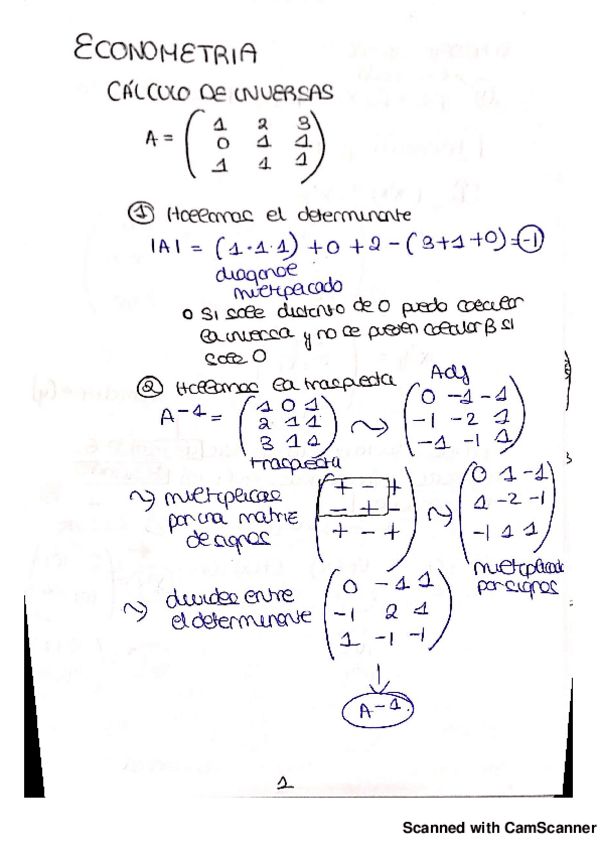 ECONOMETRIA
CÁLCULO DE INVERSAS
A = ( 1 2 3
0 1 1
1 1 1 )
① Hallamos el determinante
|A| = (1·1·1) + 0 + 2 - (3+1+0) = -1
diagonal
multiplicado
o Si sale distinto de 0 puedo calcular
la inversa y no se puede calcular β si
sale 0
② Hallamos la traspuesta
Adj
A-1 = ( 1 0 1
2 1 1
3 1 1 ) ~> ( 0 -1 -1
-1 -2 1
-1 -1 1 )
traspuesta
~> multiplicas
por una matriz
de signos
( + - +
- + -
+ - + ) ~> ( 0 1 -1
1 -2 -1
-1 1 1 )
multiplicado
por signos
~> divides entre
el determinante
( 0 -1 1
-1 2 1
1 -1 -1 )
A-1
1
Scanned with CamScanner